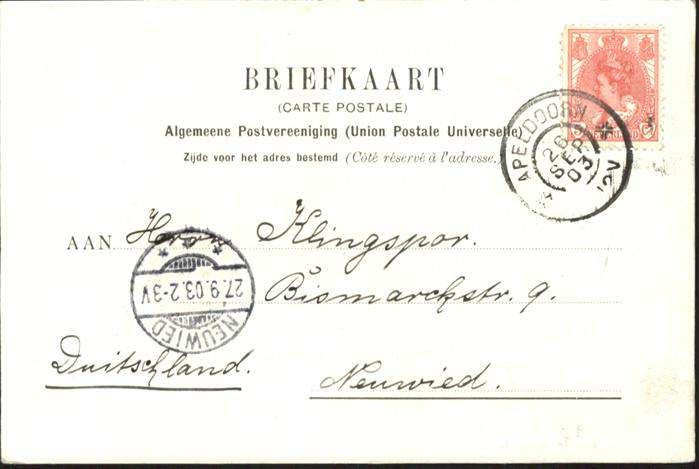 BRIEFKAART
(CARTE POSTALE)
Algemeene Postvereeniging (Union Postale Universelle)
Zijde voor het adres bestemd (Côté réservé à l'adresse.)
APELDOORN
26
SEP
03
12V
AAN Herrn Klingspor.
Bismarckstr. 9.
27.9.03.2-3V
NEUWIED
Duitschland.
Neuwied.